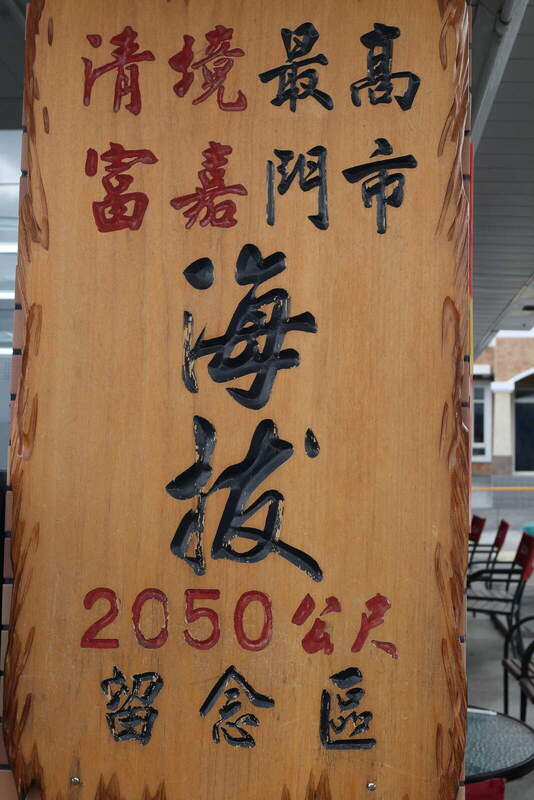 清境最高
富嘉門市
海
拔
2050公尺
留念區